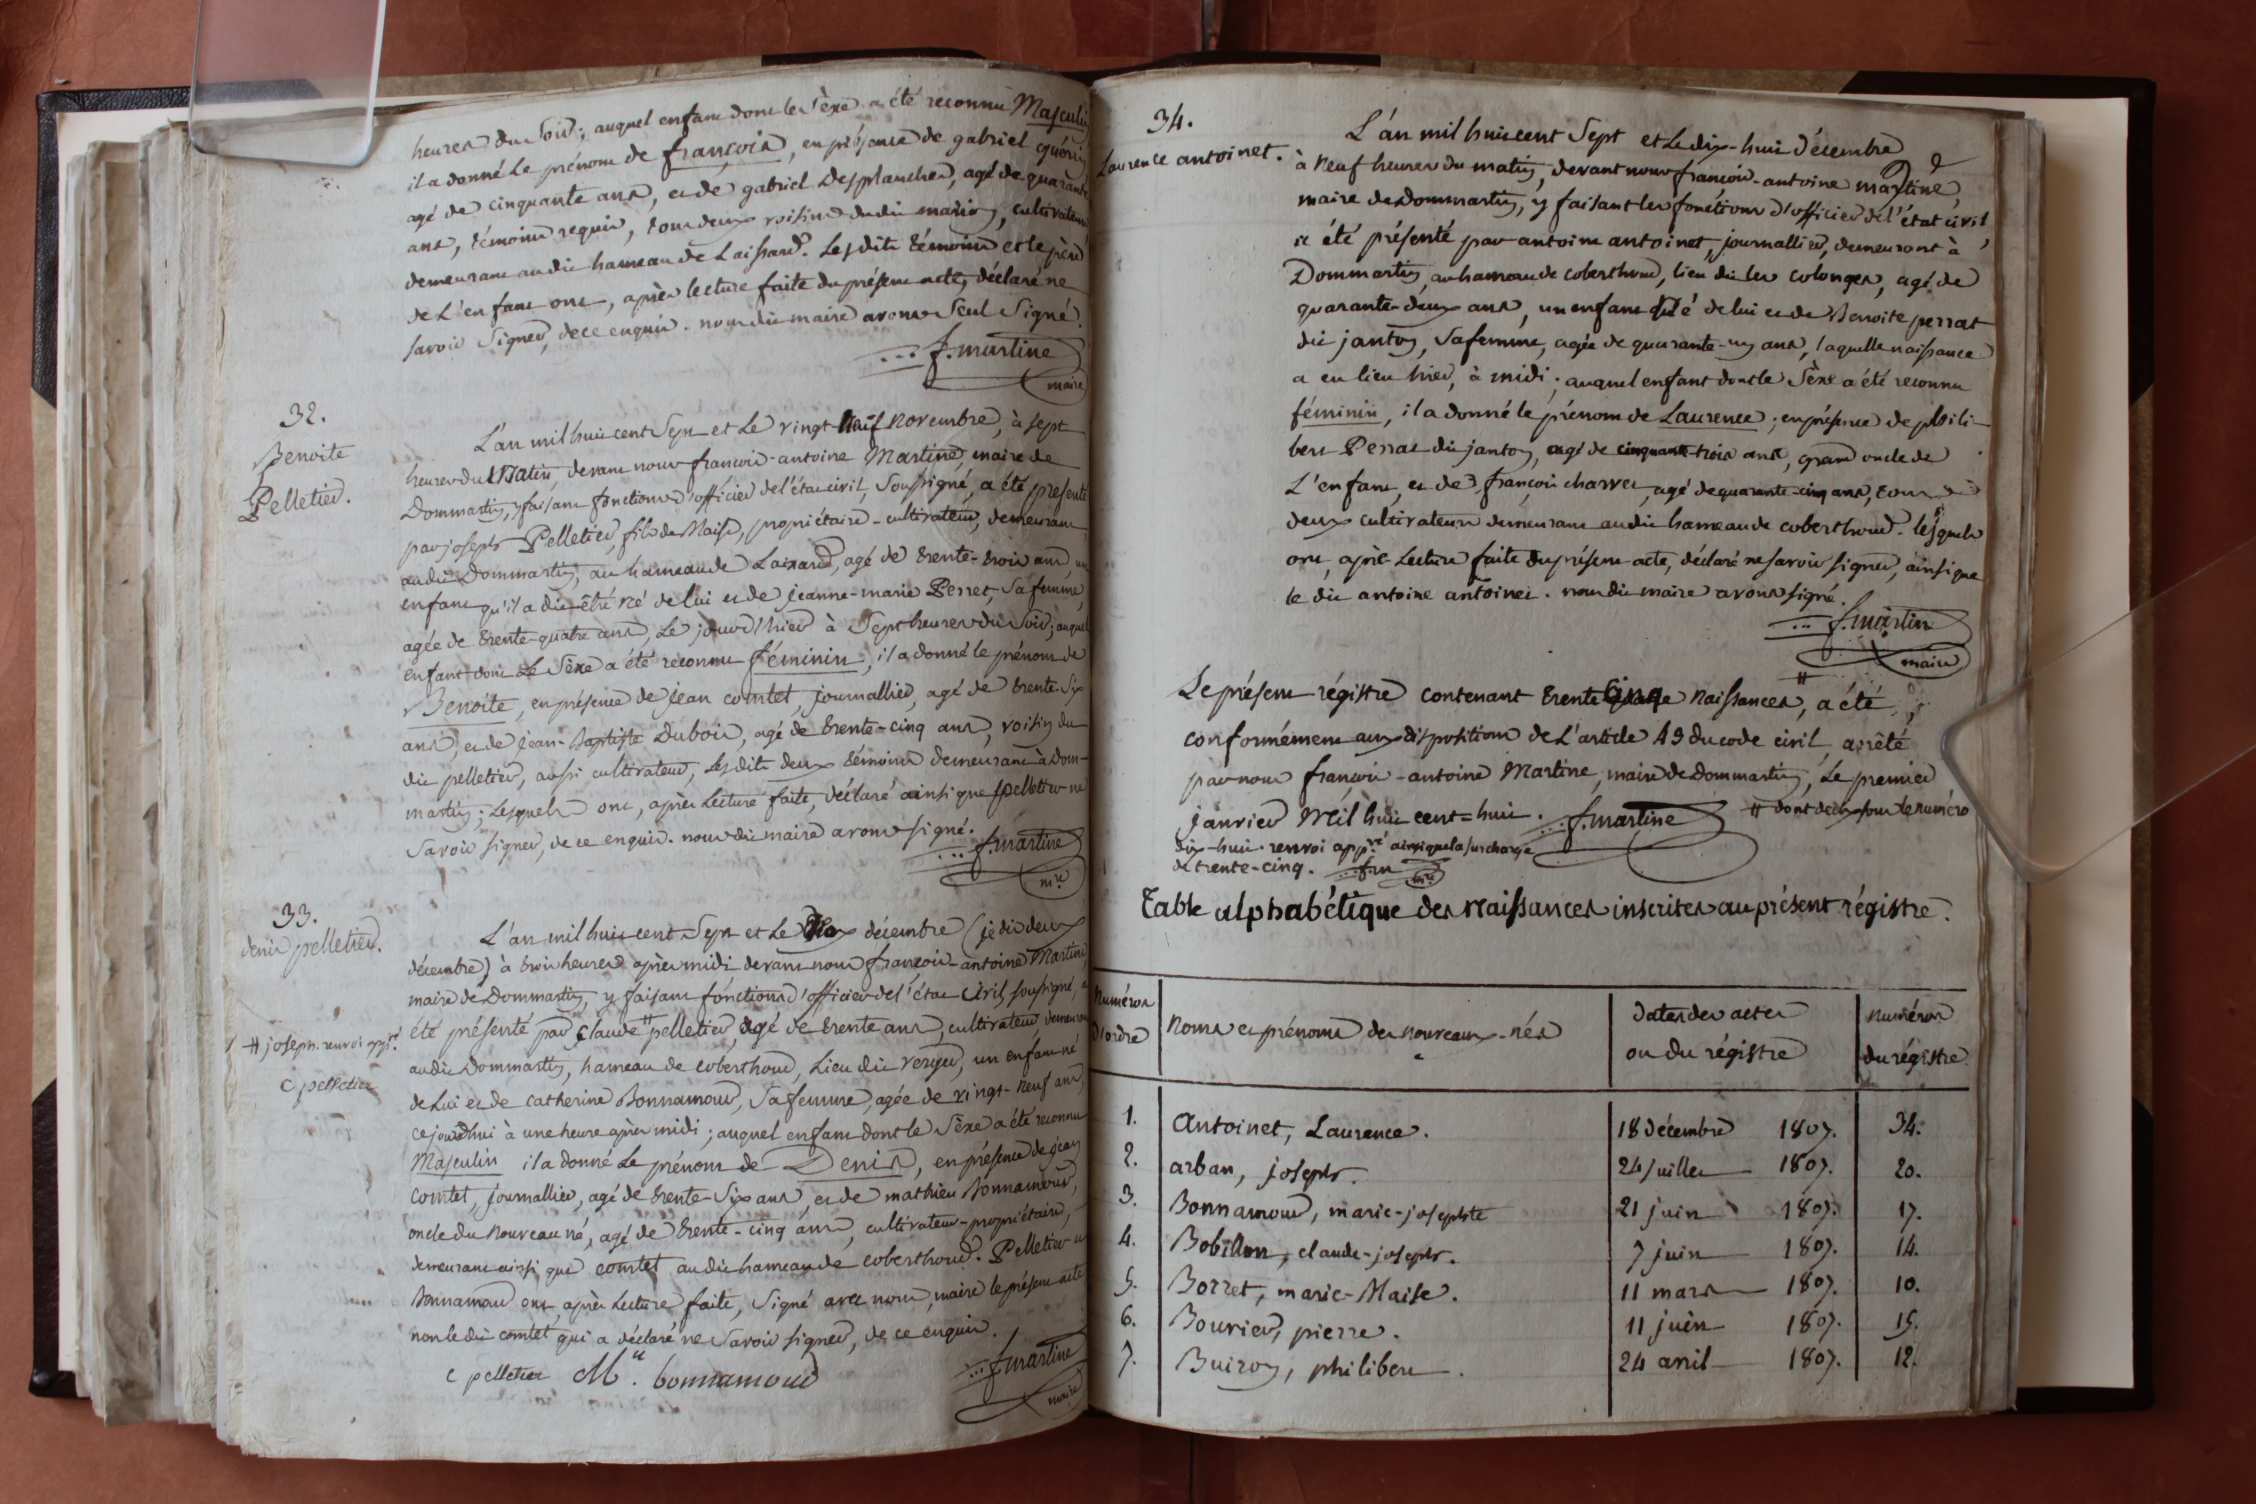 heures du Soir; auquel enfant dont le Sèxe a été reconnu Masculin
il a donné le prénom de françois, en présence de gabriel
agé de cinquante ans, et de gabriel Desplanches, agé de quarante
ans, témoins requis, tous deux voisins dudit marion, cultivateurs
demeurant audit hameau de Laissard. Lesdits témoins et le père
de L'enfant ont, après lecture faite du présent acte, déclaré ne
savoir Signer, de ce enquis. nous dit maire avons Seul Signé.
f. martine
maire
32.
Benoite
Pelletier.
L'an mil huit cent Sept et Le vingt neuf novembre, à sept
heures du Matin, devant nous françois-antoine Martine, maire de
Dommartin, y faisant fonctions d'officier de l'état civil, Soussigné, a été présenté
par joseph Pelletier, fils de Maise, propriétaire-cultivateur, demeurant
audit Dommartin, au hameau de Laixard, agé de trente-trois ans, un
enfant qu'il a dit être né de lui et de jeanne-marie Perret, Sa femme,
agée de trente-quatre ans, Le jour d'hier à Sept heures du Soir; auquel
enfant dont Le Sèxe a été reconnu féminin, il a donné le prénom de
Benoite, en présence de jean comtet, journallier, agé de trente-Six
ans, et de jean-Baptiste Dubois, agé de trente-cinq ans, voisin du
dit pelletier, aussi cultivateur, Lesdits deux témoins demeurant à Dom-
martin; Lesquels ont, après Lecture faite, déclaré ainsi que pelletier ne
Savoir signer, de ce enquis. nous dit maire avons signé.
f. martine
mre
33.
denis pelletier.
L'an mil huit cent Sept et Le deux décembre (je dis deux
décembre) à trois heures après midi devant nous françois-antoine Martine
maire de Dommartin, y faisant fonctions d'officier de l'état Civil soussigné, a
été présenté par claude # pelletier, agé de trente ans, cultivateur demeurant
# joseph. renvoi appré
c pelletier
audit Dommartin, hameau de coberthoud, Lieu dit verger, un enfant né
de Lui et de catherine Bonnamour, Sa femme, agée de vingt-neuf ans,
cejourd'hui à une heure après midi; auquel enfant dont le Sèxe a été reconnu
Masculin il a donné Le prénom de Denis, en présence de jean
comtet, journallier, agé de trente-Six ans, et de mathieu Bonnamour,
oncle du nouveau né, agé de trente-cinq ans, cultivateur-propriétaire,
demeurant ainsi que comtet audit hameau de coberthoud. Pelletier et
Bonnamour ont, après Lecture faite, Signé avec nous, maire le présent acte
non le dit comtet qui a déclaré ne Savoir signer, de ce enquis.
c pelletier Mu. bonnamour
f. martine
maire
34.
Laurence antoinet.
L'an mil huit cent Sept et Le dix-huit décembre
à Neuf heures du matin, devant nous françois-antoine martine,
maire de dommartin, y faisant les fonctions d'officier de l'état civil,
a été présenté par antoine antoinet, journallier, demeurant à
Dommartin, au hameau de coberthoud, lieu dit les colonges, agé de
quarante-deux ans, un enfant né de lui et de Benoite perrat
dit janton, sa femme, agée de quarante-un ans, laquelle naissance
a eu lieu hier, à midi; auquel enfant dont le Sèxe a été reconnu
féminin, il a donné le prénom de Laurence; en présence de phili-
bert Perrat dit janton, agé de cinquante-trois ans, grand oncle de
L'enfant, et de françois charvet, agé de quarante-cinq ans, tous
deux cultivateurs demeurant audit hameau de coberthoud. lesquels
ont, après Lecture faite du présent acte, déclaré ne savoir signer, ainsi que
le dit antoine antoinet. nous dit maire avons signé.
f. martine
maire
Le présent régistre contenant trente cinq # Naissances, a été,
conformément aux dispositions de L'article 43 du code civil, arrêté
par nous françois-antoine Martine, maire de dommartin, Le premier
janvier Mil huit cent=huit. f. martine # dont deux sous le numéro
dix-huit. renvoi appvé ainsi que la surcharge
de trente-cinq. f.m mre
Table alphabétique des naissances inscrites au présent régistre.
Numéros d'ordre | Noms et prénoms des nouveaux-nés | dates des actes ou du régistre | numéros du régistre
1. Antoinet, Laurence. 18 Décembre 1807. 34.
2. arban, joseph. 24 juillet 1807. 20.
3. Bonnamour, marie-josephte 21 juin 1807. 17.
4. Bobillon, claude-joseph. 7 juin 1807. 14.
5. Borret, marie-Maise. 11 mars 1807. 10.
6. Bouvier, pierre. 11 juin 1807. 15.
7. Buiron, philibert. 24 avril 1807. 12.